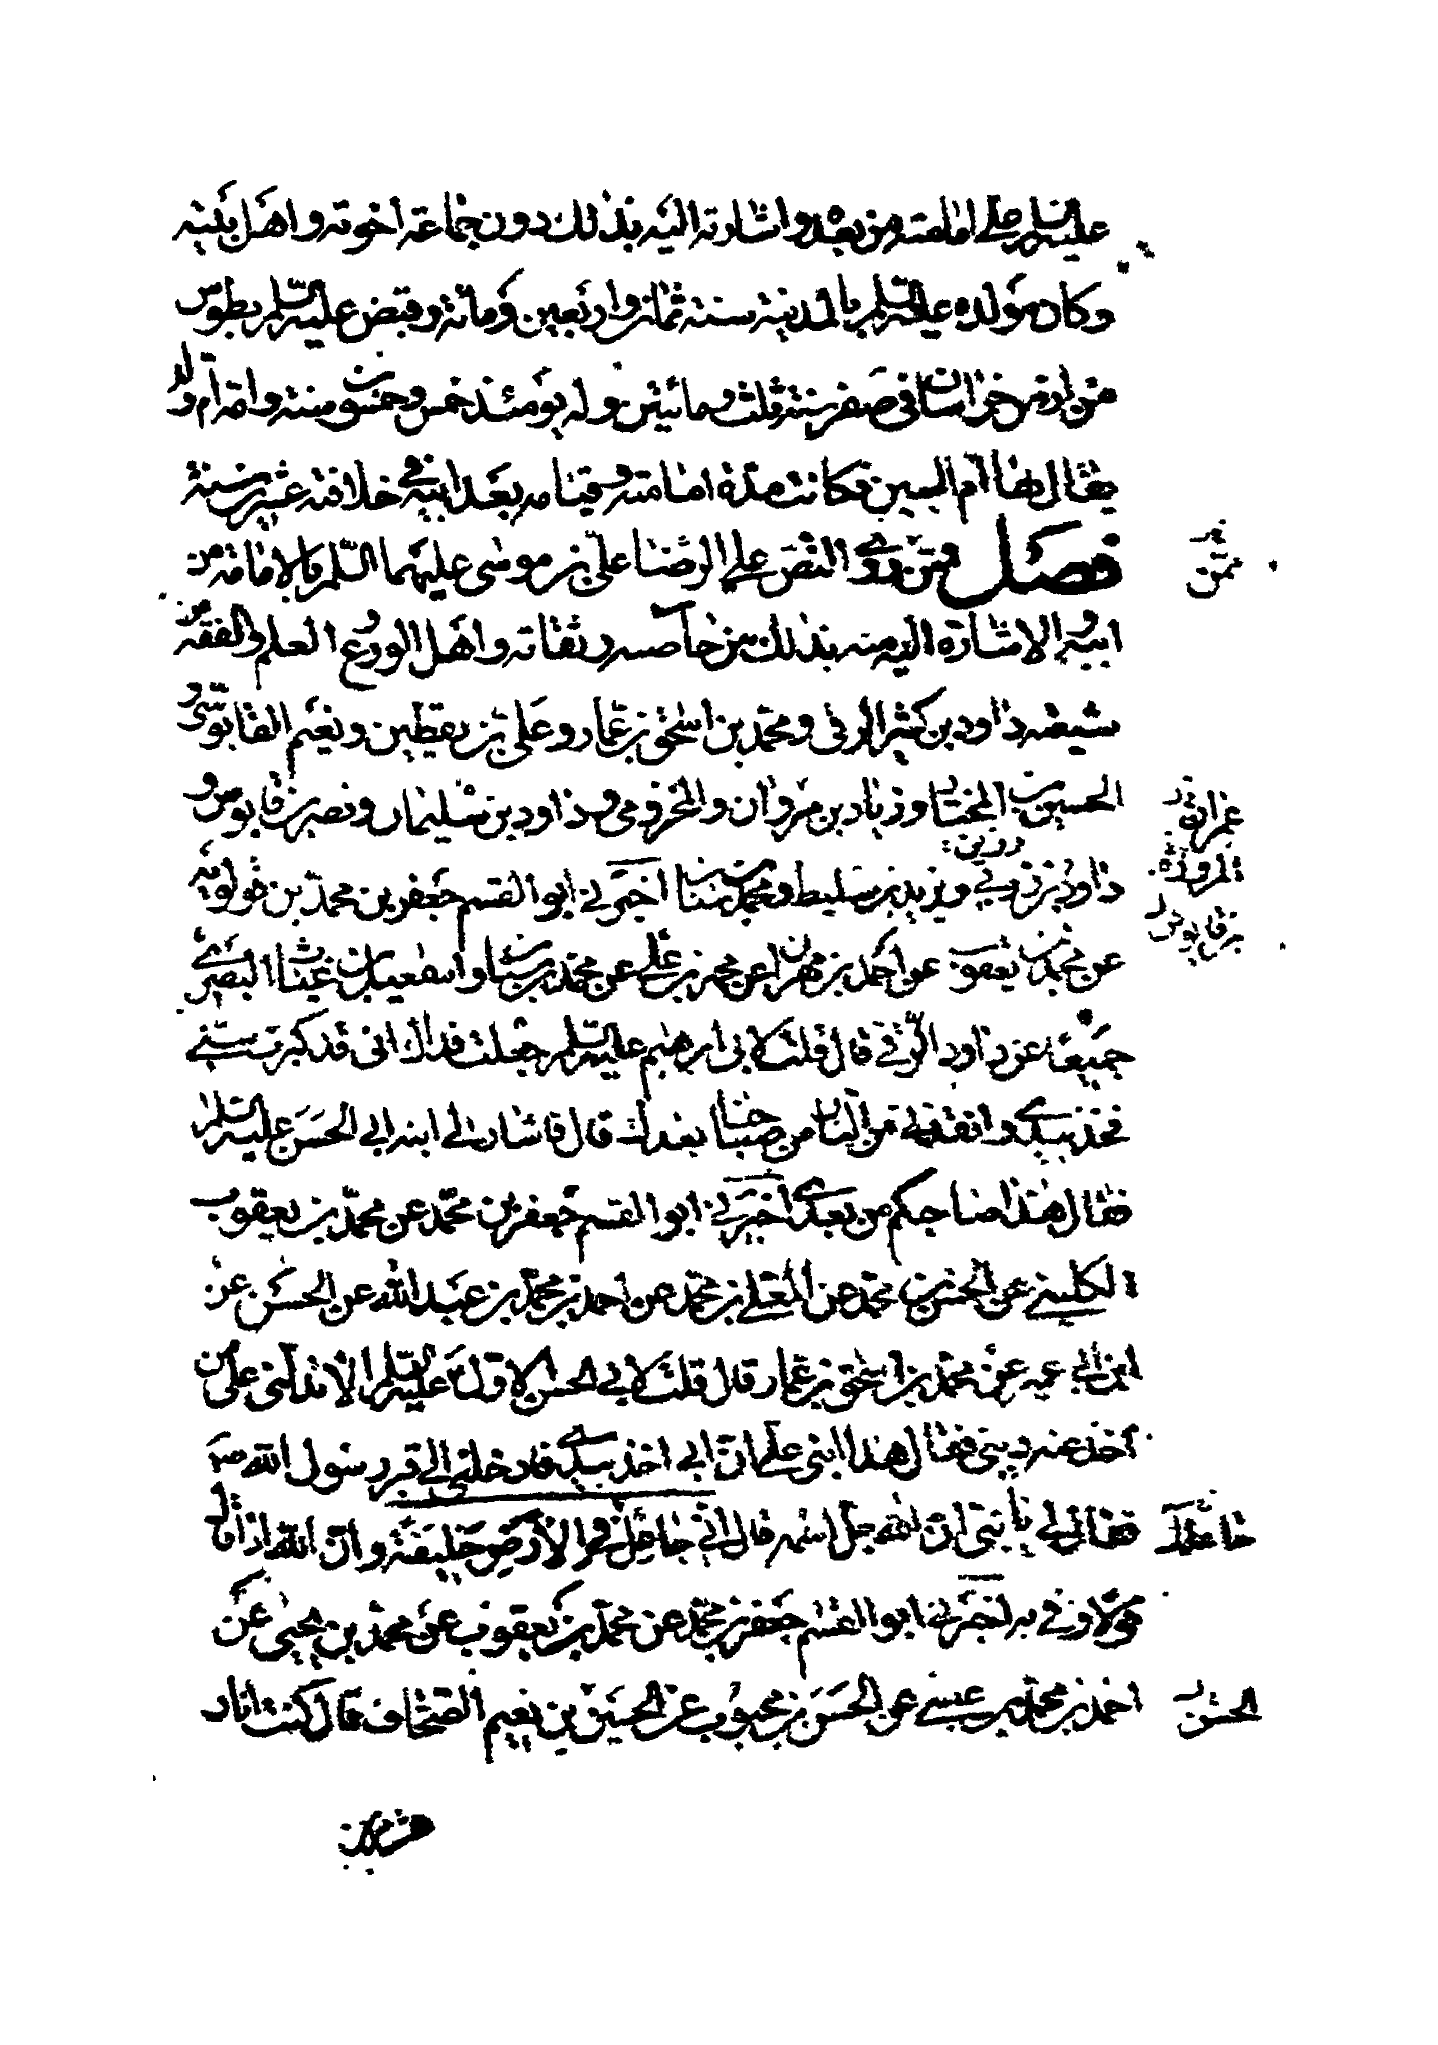 عليه السلم على امامته من بعده واشارته اليه بذلك دون جماعة اخوته واهل بيته
وكان مولده عليه السلم بالمدينة سنة ثمان واربعين ومائة وقبض عليه السلم بطوس
من ارض خراسان في صفر سنة ثلث ومائتين وله يومئذ خمس وخمسون سنة وامه ام ولد
يقال لها ام البنين فكانت مدة امامته وقيامه بعد ابيه في خلافته عشرين سنة
فصل فمن روى النص على الرضا علي بن موسى عليهما السلم بالامامة من
ممن
ابيه والاشارة اليه منه بذلك من خاصته وثقاته واهل الورع والعلم والفقه من
شيعته داود بن كثير الرقي ومحمد بن اسحق بن عمار وعلي بن يقطين ونعيم القابوسي و
الحسين بن المختار وزياد بن مروان والمخزومي وداود بن سليمان ونصر بن قابوس و
داود بن زربي ويزيد بن سليط ومحمد بن سنان اخبرني ابو القسم جعفر بن محمد بن قولويه
زربي
بن قابوس
عن محمد بن يعقوب عن احمد بن مهران عن محمد بن علي عن محمد بن سنان واسمعيل بن غياث البصري
جميعا عن داود الرقي قال قلت لابي ابرهيم عليه السلم جعلت فداك اني قد كبرت سني
فخذ بيدي وانقذني من النار من صاحبنا بعدك قال فاشار الى ابنه ابي الحسن عليه السلم
فقال هذا صاحبكم من بعدي اخبرني ابو القسم جعفر بن محمد عن محمد بن يعقوب
الكليني عن الحسن بن محمد عن المعلى بن محمد عن احمد بن محمد بن عبد الله عن الحسن عن
ابن ابي عمير عن محمد بن اسحق بن عمار قال قلت لابي الحسن الاول عليه السلم الا تدلني على من
اخذ عنه ديني فقال هذا ابني علي ان ابي اخذ بيدي فادخلني الى قبر رسول الله ص
فقال لي يا بني ان الله جل اسمه قال اني جاعل في الارض خليفة وان الله اذا قال
قولا وفى به اخبرني ابو القسم جعفر بن محمد عن محمد بن يعقوب عن محمد بن يحيى عن
احمد بن محمد بن عيسى عن الحسن بن محبوب عن الحسين بن نعيم الصحاف قال كنت انا و
الحسن